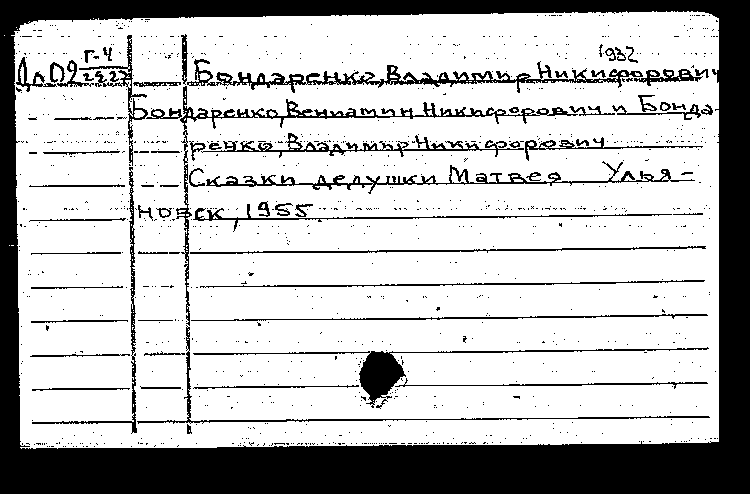 1932
Г-4
Дл09 2227 Бондаренко, Владимир Никифорович
Бондаренко, Вениамин Никифорович и Бонда-
ренко, Владимир Никифорович
Сказки дедушки Матвея Улья-
новск, 1955.